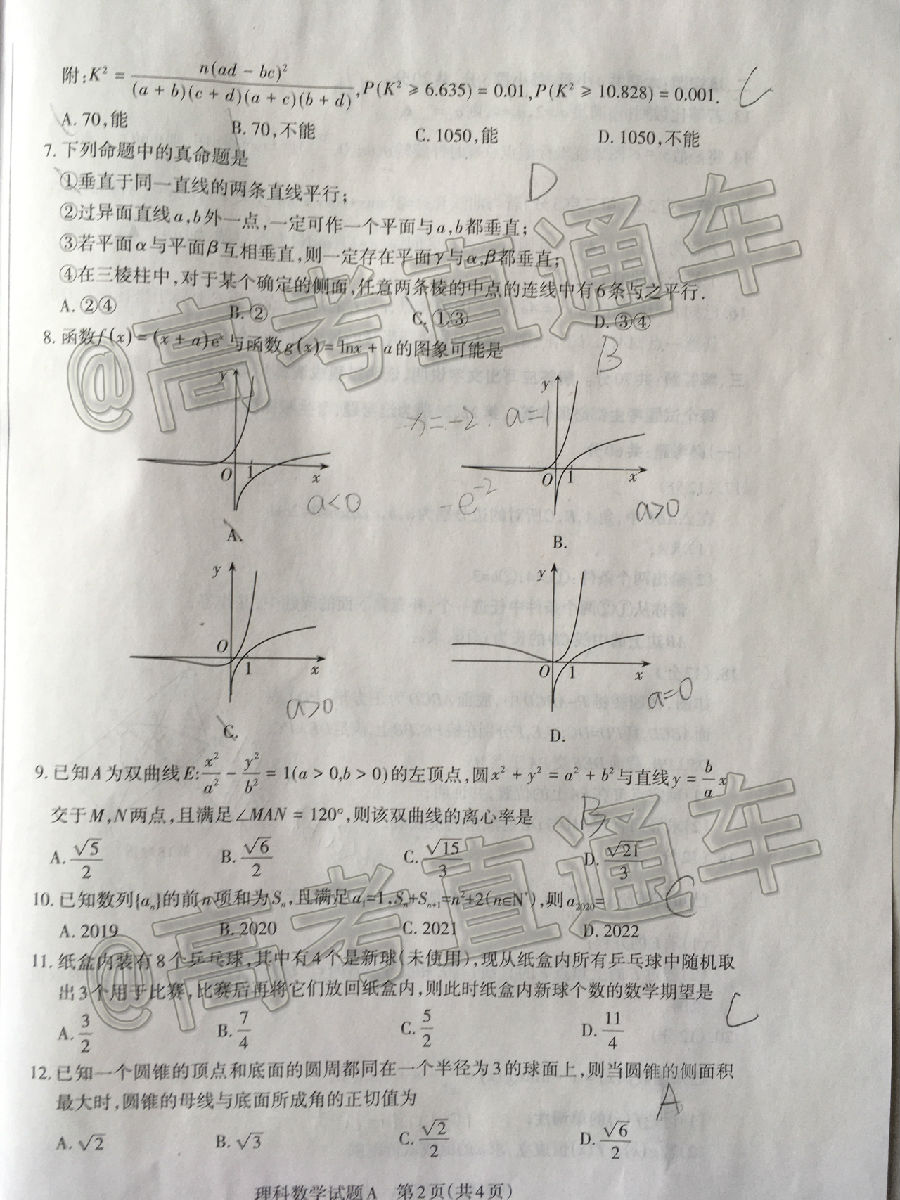 附:K² = n(ad - bc)² / (a + b)(c + d)(a + c)(b + d), P(K² ⩾ 6.635) = 0.01, P(K² ⩾ 10.828) = 0.001. C
A. 70,能 B. 70,不能 C. 1050,能 D. 1050,不能
7. 下列命题中的真命题是
①垂直于同一直线的两条直线平行; D
②过异面直线a,b外一点,一定可作一个平面与a,b都垂直;
③若平面α与平面β互相垂直,则一定存在平面γ与α,β都垂直;
④在三棱柱中,对于某个确定的侧面,任意两条棱的中点的连线中有6条与之平行.
A. ②④ B. ② C. ①③ D. ③④
8. 函数f(x)=(x+a)eˣ与函数g(x)=lnx+a的图象可能是 B
y O 1 x a<0
A.
x=-2. a=1
-e⁻²
y O 1 x a>0
B.
y O 1 x a>0
C.
y O 1 x a=0
D.
9. 已知A为双曲线E: x²/a² - y²/b² = 1(a>0,b>0)的左顶点,圆x²+y²=a²+b²与直线y=b/a x
交于M,N两点,且满足∠MAN=120°,则该双曲线的离心率是 B
A. √5/2 B. √6/2 C. √15/3 D. √21/3
10. 已知数列{aₙ}的前n项和为Sₙ,且满足a₁=1,Sₙ+Sₙ₊₁=n²+2(n∈N*),则a₂₀₂₀= C
A. 2019 B. 2020 C. 2021 D. 2022
11. 纸盒内装有8个乒乓球,其中有4个是新球(未使用),现从纸盒内所有乒乓球中随机取
出3个用于比赛,比赛后再将它们放回纸盒内,则此时纸盒内新球个数的数学期望是 C
A. 3/2 B. 7/4 C. 5/2 D. 11/4
12. 已知一个圆锥的顶点和底面的圆周都同在一个半径为3的球面上,则当圆锥的侧面积
最大时,圆锥的母线与底面所成角的正切值为 A
A. √2 B. √3 C. √2/2 D. √6/2
理科数学试题A 第2页(共4页)
@高考直通车
@高考直通车